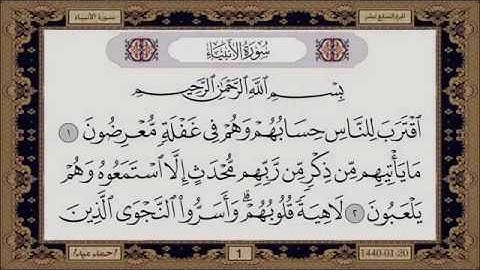 سورة الأنبياء
الجزء السابع عشر
سُورَةُ الأَنبِيَاءِ
بِسْمِ اللَّهِ الرَّحْمَٰنِ الرَّحِيمِ
ٱقْتَرَبَ لِلنَّاسِ حِسَابُهُمْ وَهُمْ فِى غَفْلَةٍ مُّعْرِضُونَ ١
مَا يَأْتِيهِم مِّن ذِكْرٍ مِّن رَّبِّهِم مُّحْدَثٍ إِلَّا ٱسْتَمَعُوهُ وَهُمْ
يَلْعَبُونَ ٢ لَاهِيَةً قُلُوبُهُمْ ۗ وَأَسَرُّوا۟ ٱلنَّجْوَى ٱلَّذِينَ
1
1440-01-20